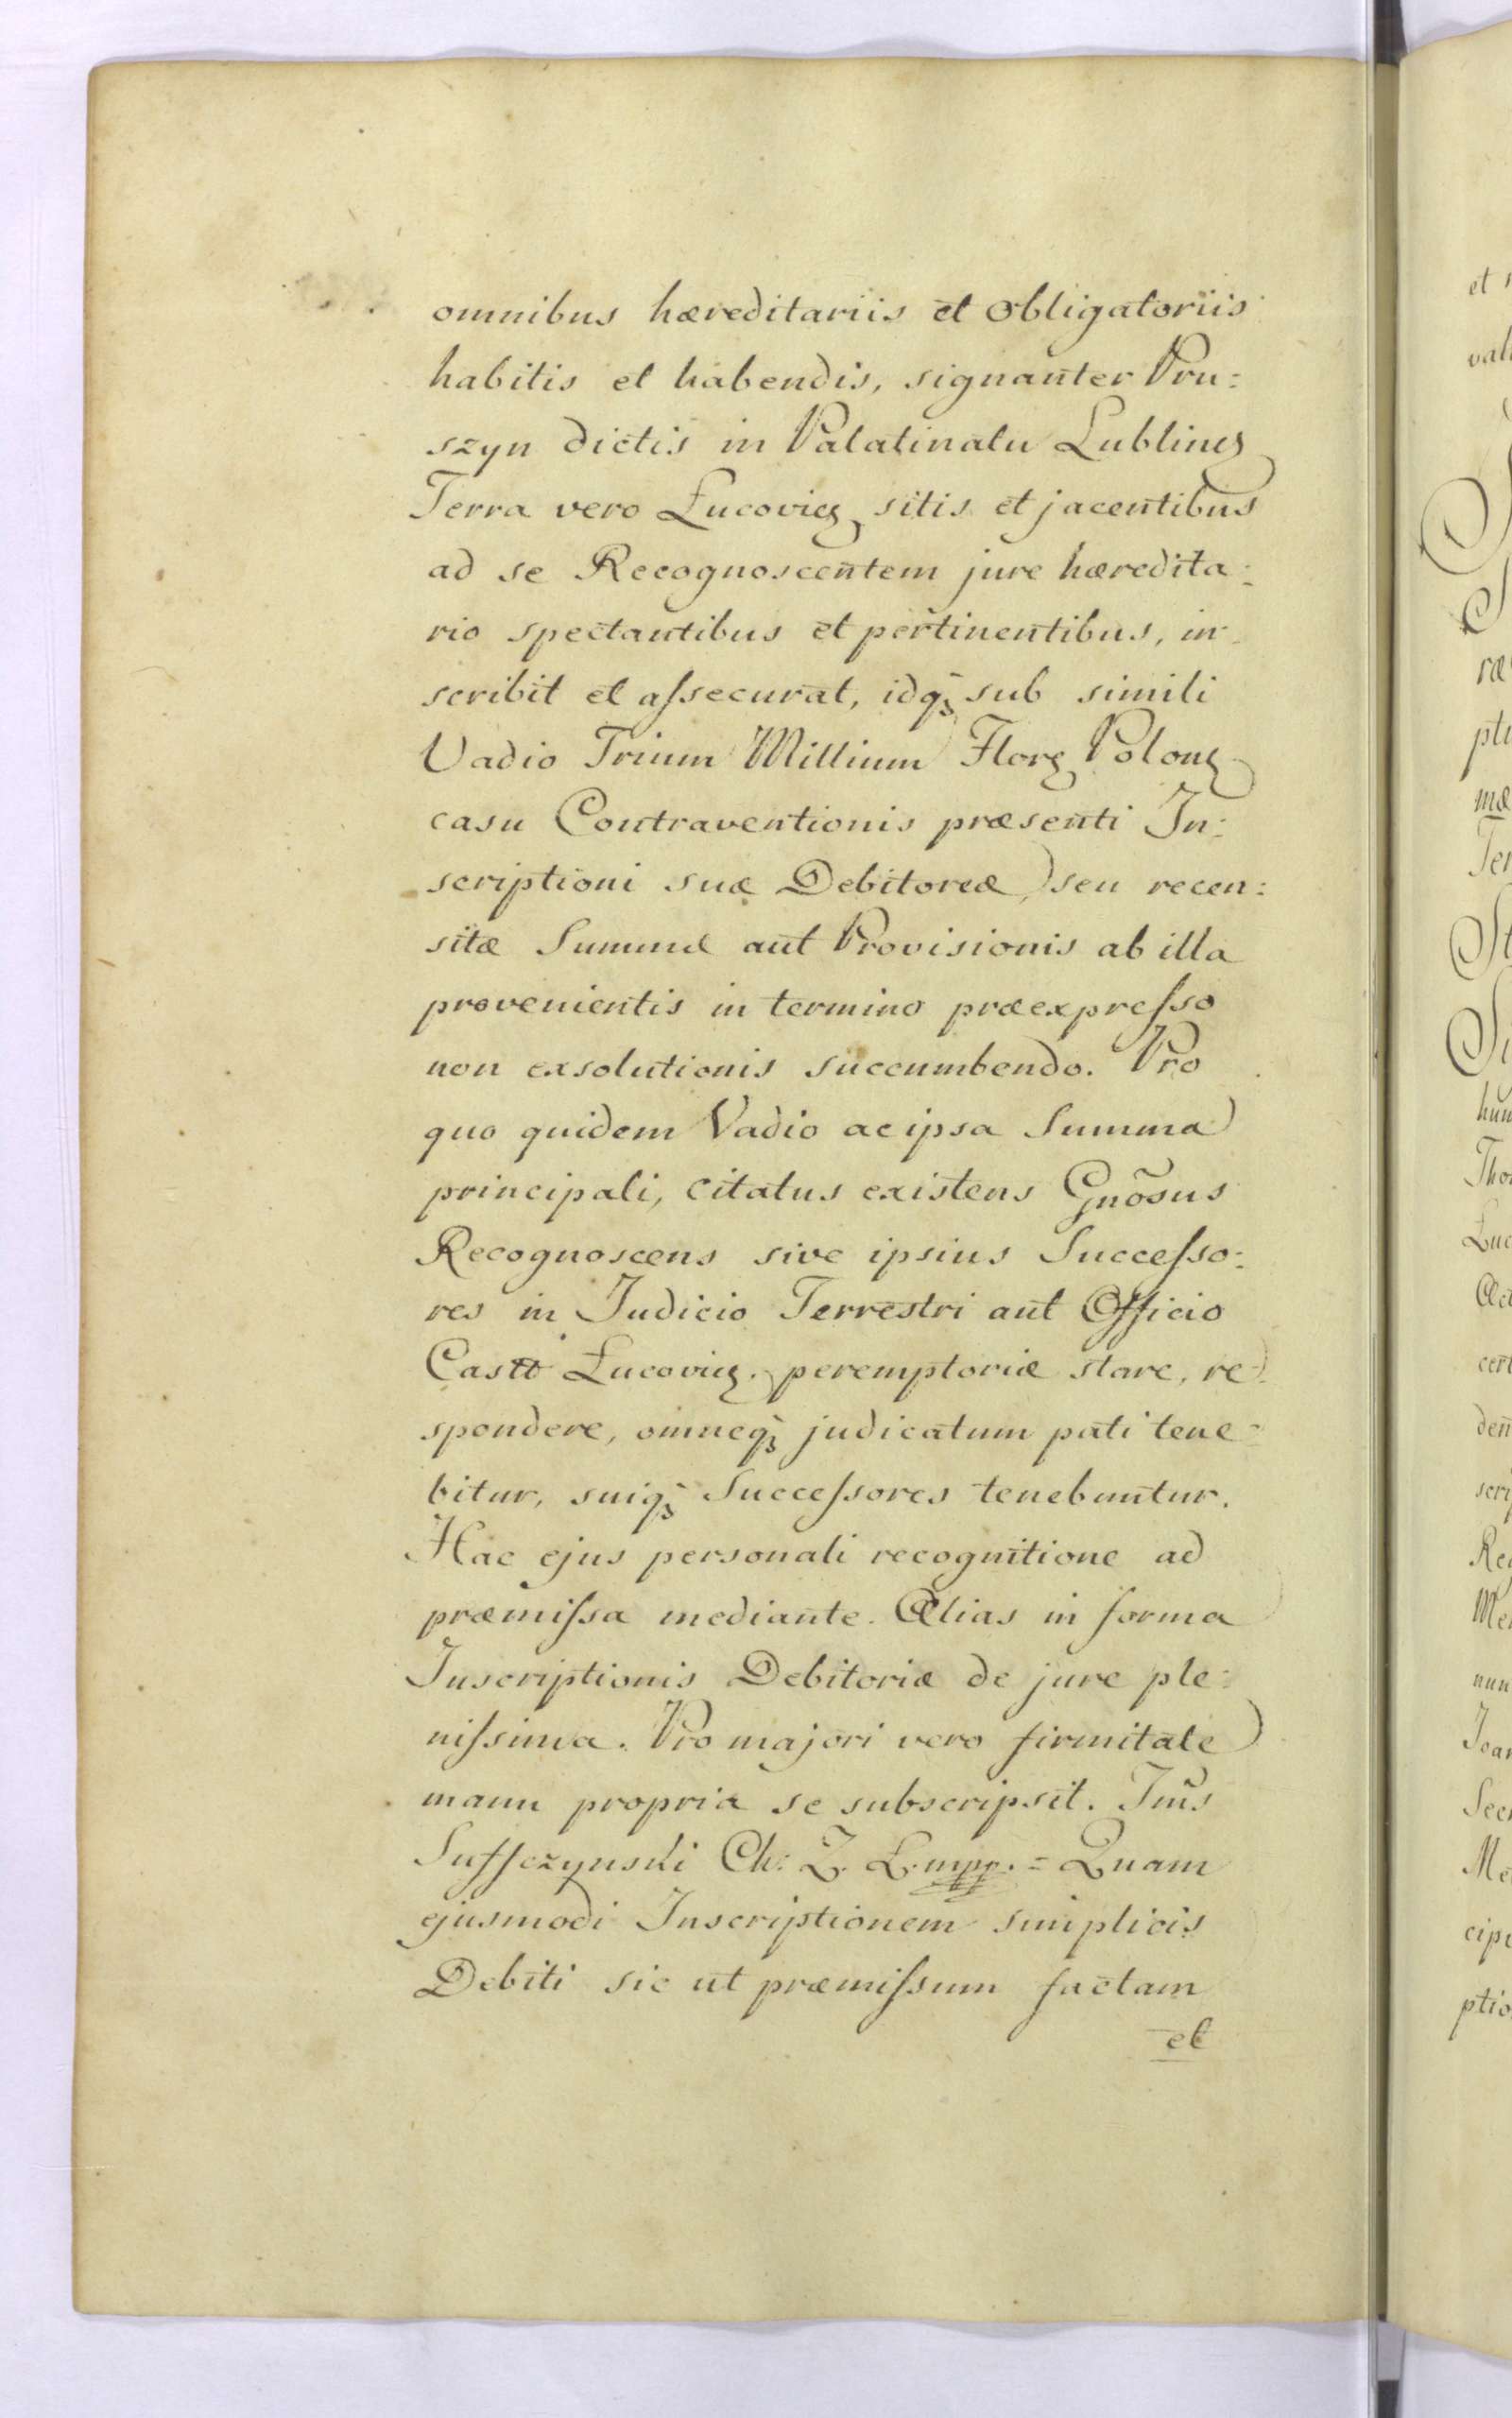 omnibus hæreditariis et obligatoriis
habitis et habendis, signanter Pru=
szyn dictis in Palatinatu Lublinę
Terra vero Łucovieę sitis et jacentibus
ad se Recognoscentem jure hæredita=
rio spectantibus et pertinentibus, in
scribit et aſsecurat, idq; sub simili
Vadio Trium Millium Florę Polonę
casu Contraventionis præsenti In=
scriptioni suæ Debitoreæ seu recen=
sitæ Summæ aut Provisionis ab illa
provenientis in termino præexpreſso
non exsolutionis succumbendo. Pro
quo quidem Vadio ac ipsa Summa
principali, citatus existens Gnõsus
Recognoscens sive ipsius Succeſso=
res in Judicio Terrestri aut Officio
Castt Łucovieę. peremptoriæ stare, re=
spondere, omneq; judicatum pati tene=
bitur, suiq; Succeſsores tenebuntur.
Hac ejus personali recognitione ad
præmiſsa mediante. Alias in forma
Inscriptionis Debitoriæ de jure ple=
niſsima. Pro majori vero firmitate
manu propria se subscripsit. Im̃s
Suffczynski Ch: Z. Ł. mpp. = Quam
ejusmodi Inscriptionem simplicis
Debiti sic ut præmiſsum factam
et